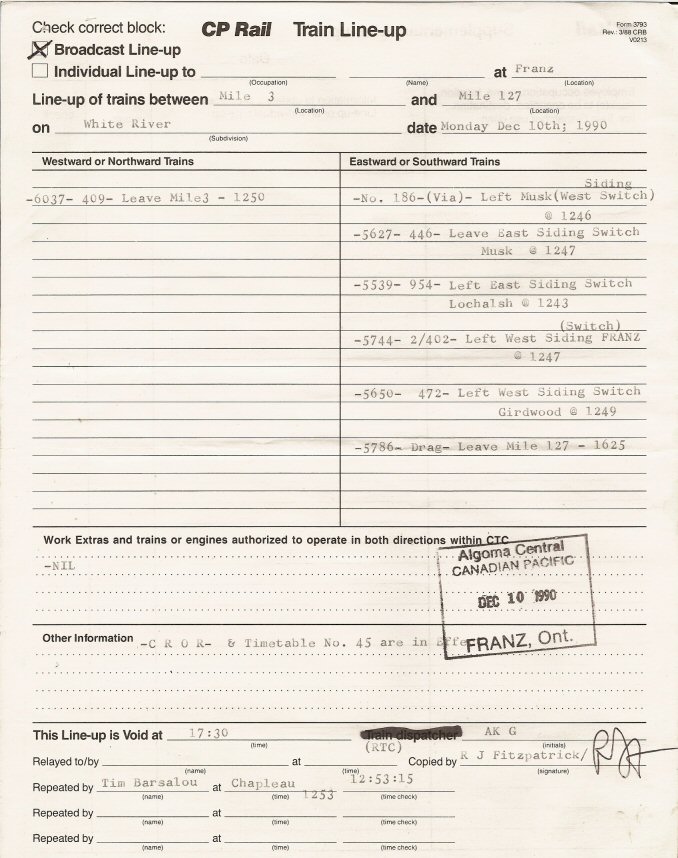 Check correct block: CP Rail Train Line-up
Form 3793
Rev.: 3/88 CRB
V0213
X Broadcast Line-up
Individual Line-up to at Franz
(Occupation) (Name) (Location)
Line-up of trains between Mile 3 and Mile 127
(Location) (Location)
on White River date Monday Dec 10th; 1990
(Subdivision)
Westward or Northward Trains
-6037- 409- Leave Mile3 - 1250
Eastward or Southward Trains
Siding
-No. 186-(Via)- Left Musk(West Switch)
@ 1246
-5627- 446- Leave East Siding Switch
Musk @ 1247
-5539- 954- Left East Siding Switch
Lochalsh @ 1243
(Switch)
-5744- 2/402- Left West Siding FRANZ
@ 1247
-5650- 472- Left West Siding Switch
Girdwood @ 1249
-5786- Drag- Leave Mile 127 - 1625
Work Extras and trains or engines authorized to operate in both directions within CTC
-NIL
Algoma Central
CANADIAN PACIFIC
DEC 10 1990
FRANZ, Ont.
Other Information -C R O R- & Timetable No. 45 are in Effe
This Line-up is Void at 17:30 Train dispatcher AK G
(time) (RTC) (initials)
Relayed to/by at Copied by R J Fitzpatrick/
(name) (time) (signature)
Repeated by Tim Barsalou at Chapleau 1253 12:53:15
(name) (time) (time check)
Repeated by at
(name) (time) (time check)
Repeated by at
(name) (time) (time check)